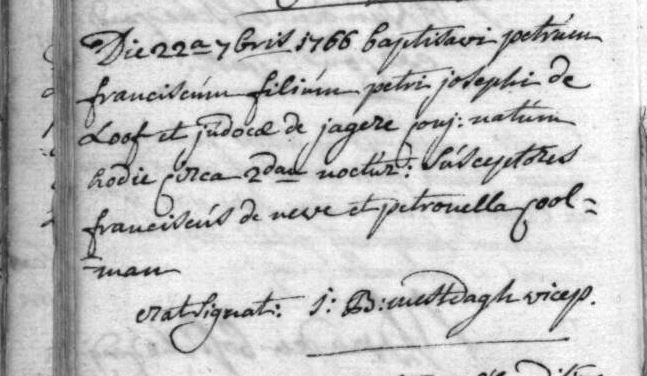 Die 22a 7bris 1766 baptisavi petrum
franciscum filium petri josephi de
Loof et judocæ de jagere conj: natum
hodie circa 2dam noctur: susceptores
franciscus de neve et petronella cool=
=man
erat signat: j: B: mestdagh vicep.